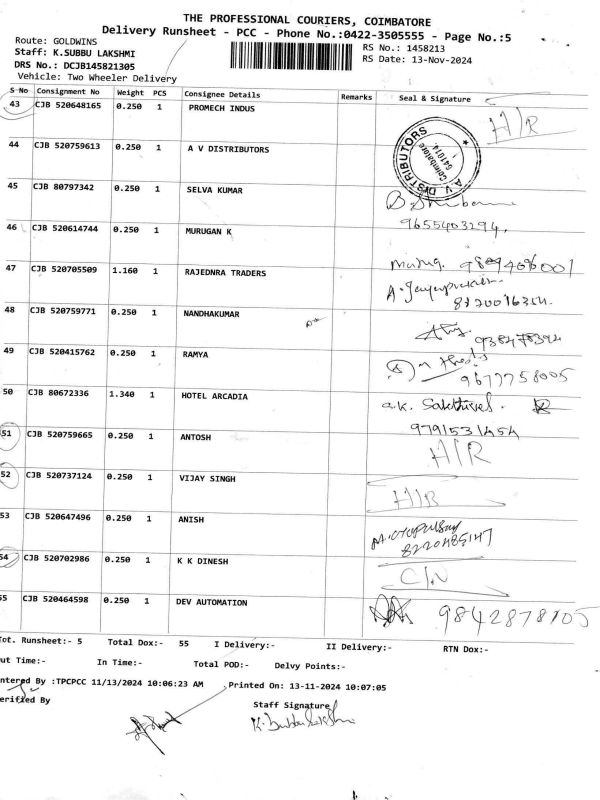 THE PROFESSIONAL COURIERS, COIMBATORE
Delivery Runsheet - PCC - Phone No.:0422-3505555 - Page No.:5
Route: GOLDWINS
RS No.: 1458213
Staff: K.SUBBU LAKSHMI
RS Date: 13-Nov-2024
DRS No.: DCJB145821305
Vehicle: Two Wheeler Delivery
S No Consignment No Weight PCS Consignee Details Remarks Seal & Signature
43 CJB 520648165 0.250 1 PROMECH INDUS H/R
44 CJB 520759613 0.250 1 A V DISTRIBUTORS
A V DISTRIBUTORS Coimbatore 641014
45 CJB 80797342 0.250 1 SELVA KUMAR
9655403294.
46 CJB 520614744 0.250 1 MURUGAN K
47 CJB 520705509 1.160 1 RAJEDNRA TRADERS
48 CJB 520759771 0.250 1 NANDHAKUMAR
49 CJB 520415762 0.250 1 RAMYA
9677758005
50 CJB 80672336 1.340 1 HOTEL ARCADIA a.k. Sakthivel.
9791531454
51 CJB 520759665 0.250 1 ANTOSH H/R
52 CJB 520737124 0.250 1 VIJAY SINGH
53 CJB 520647496 0.250 1 ANISH
54 CJB 520702986 0.250 1 K K DINESH
55 CJB 520464598 0.250 1 DEV AUTOMATION
Tot. Runsheet:- 5 Total Dox:- 55 I Delivery:- II Delivery:- RTN Dox:-
ut Time:- In Time:- Total POD:- Delvy Points:-
ntered By :TPCPCC 11/13/2024 10:06:23 AM Printed On: 13-11-2024 10:07:05
erified By
Staff Signature